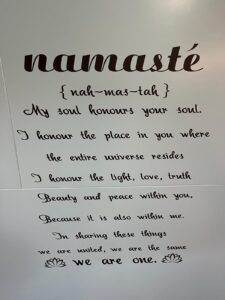 namasté
{ nah-mas-tah }
My soul honours your soul.
I honour the place in you where
the entire universe resides
I honour the light, love, truth
Beauty and peace within you,
Because it is also within me.
In sharing these things
we are united, we are the same
we are one.